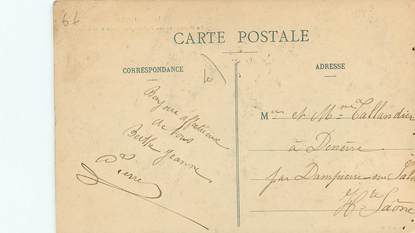 CARTE POSTALE
CORRESPONDANCE
ADRESSE
Bonjour affectueux
de vous
Berthe Jeanne
Pierre
Mr et Mme Tallandier
à Denèvre
par Dampierre-sur-Salon
Hte Saône